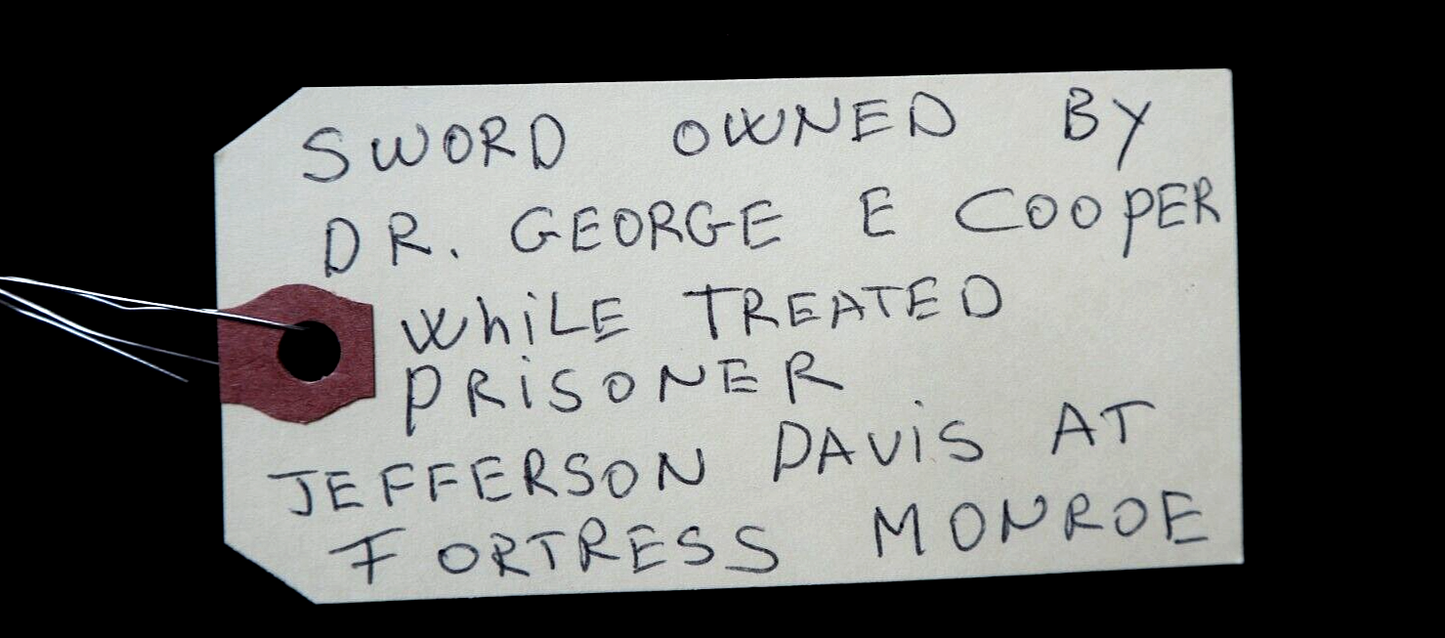 SWORD OWNED BY
DR. GEORGE E COOPER
WhiLE TREATED
PRiSONER
JEFFERSON DAViS AT
FORTRESS MONROE